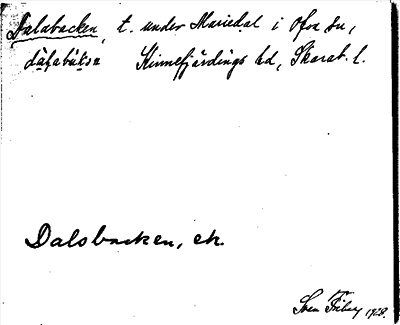 Dalabacken, t. under Mariedal i Ova sn,
Kinnefjärdings hd, Skarab. l.
Dalsbacken, ek.
Sven Friberg 1928.